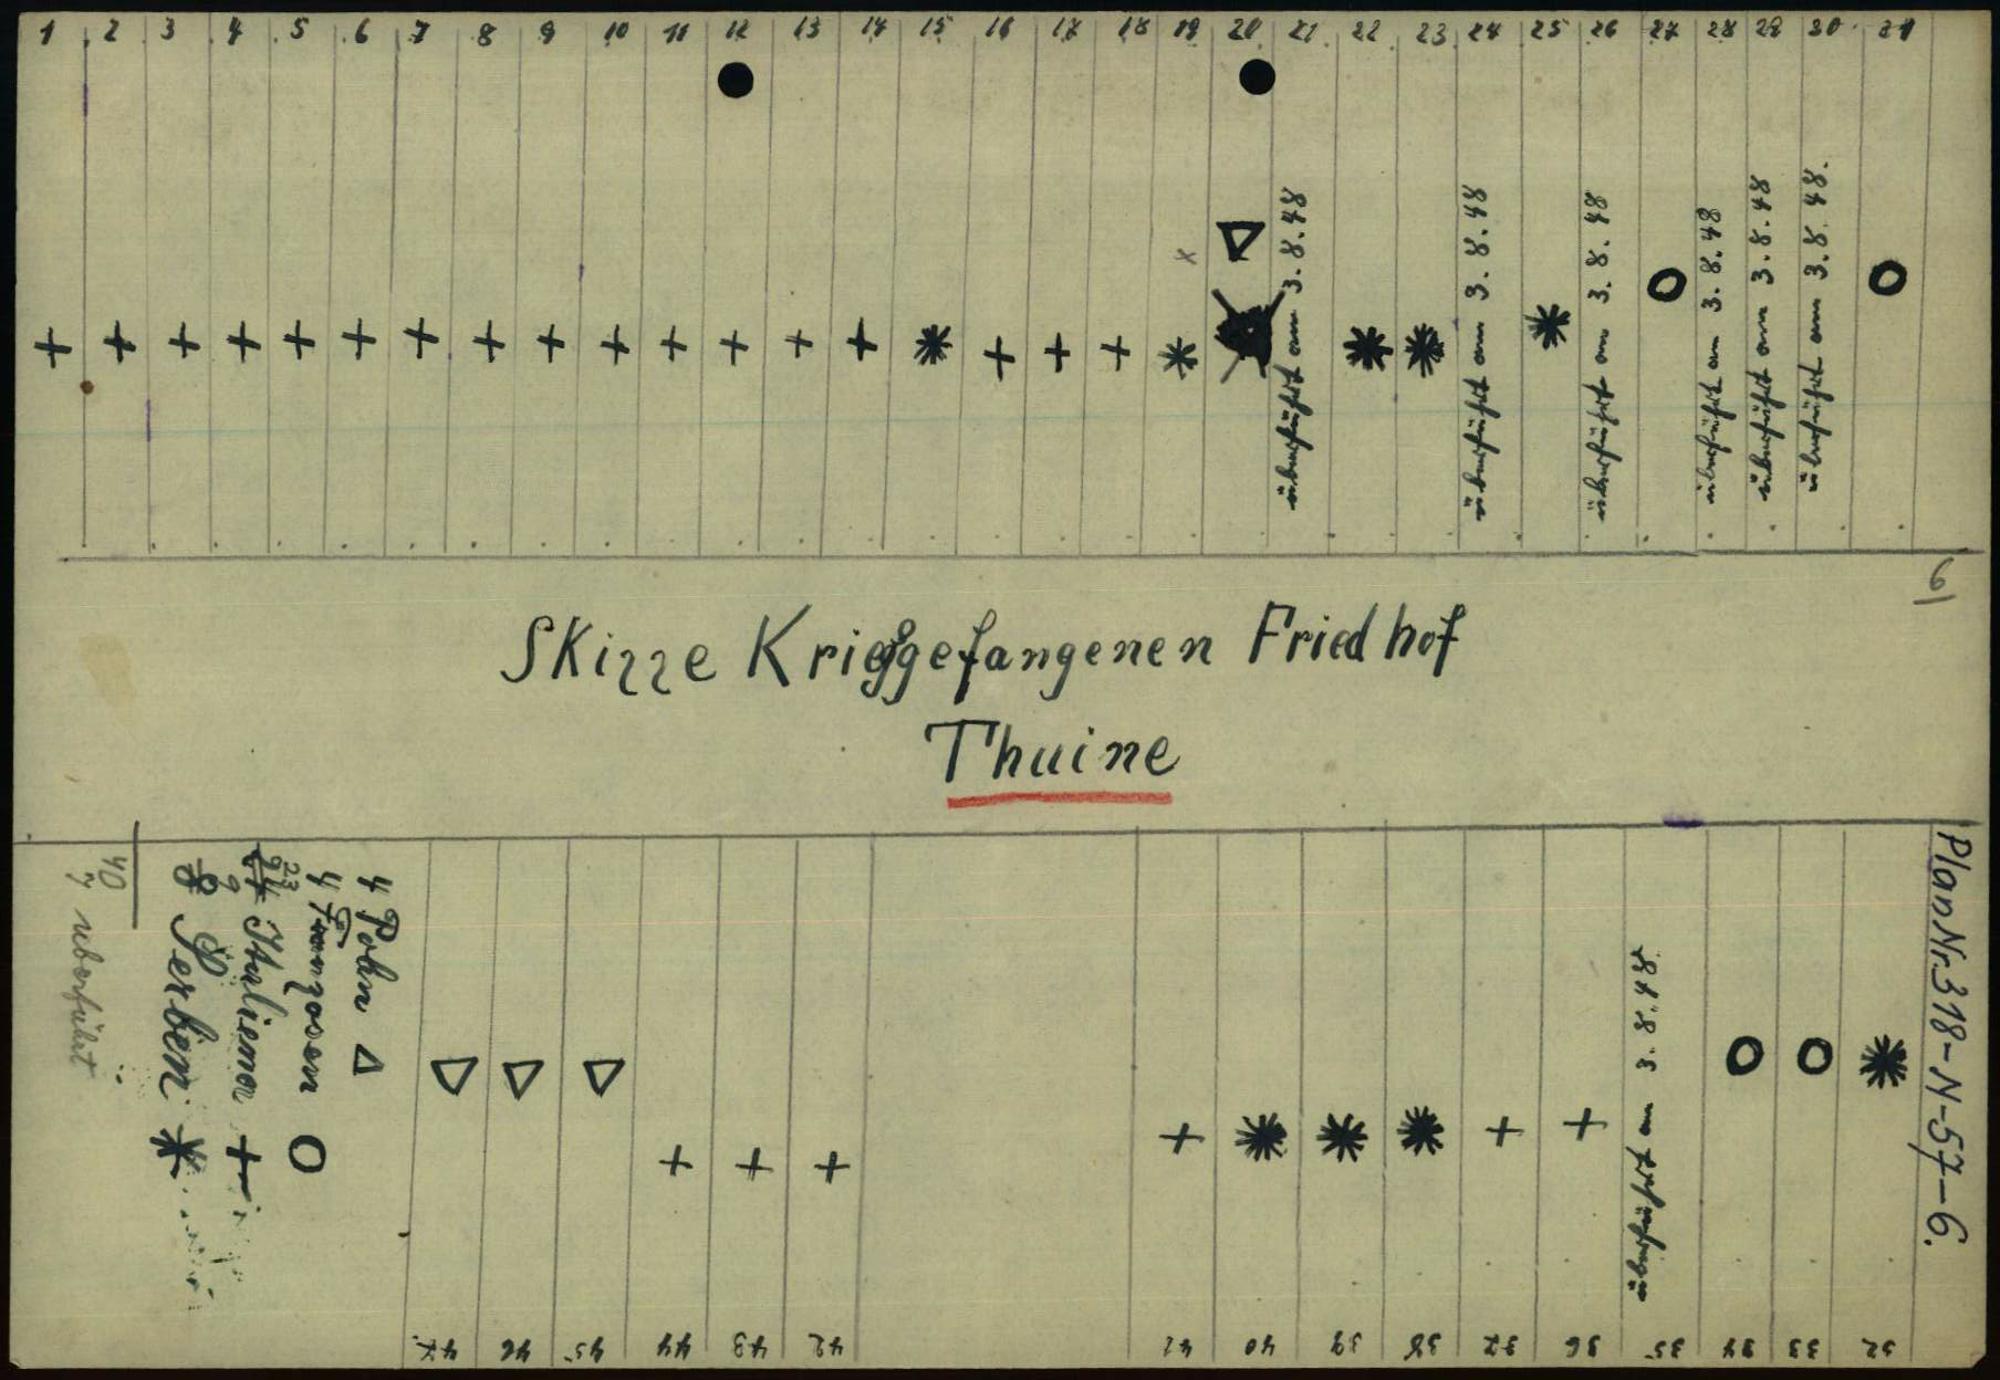 1 2 3 4 5 6 7 8 9 10 11 12 13 14 15 16 17 18 19 20 21 22 23 24 25 26 27 28 29 30 31
überführt am 3.8.48
überführt am 3.8.48
überführt am 3.8.48
überführt am 3.8.48
überführt am 3.8.48
überführt am 3.8.48.
6
Skizze Kriegsgefangenen Friedhof
Thuine
Plan Nr. 318-N-57-6.
4 Polen
4 Franzosen
23
24 Italiener
9
8 Serben
40
7 überführt
überführt am 3.8.48.
47 46 45 44 43 42 41 40 39 38 37 36 35 34 33 32